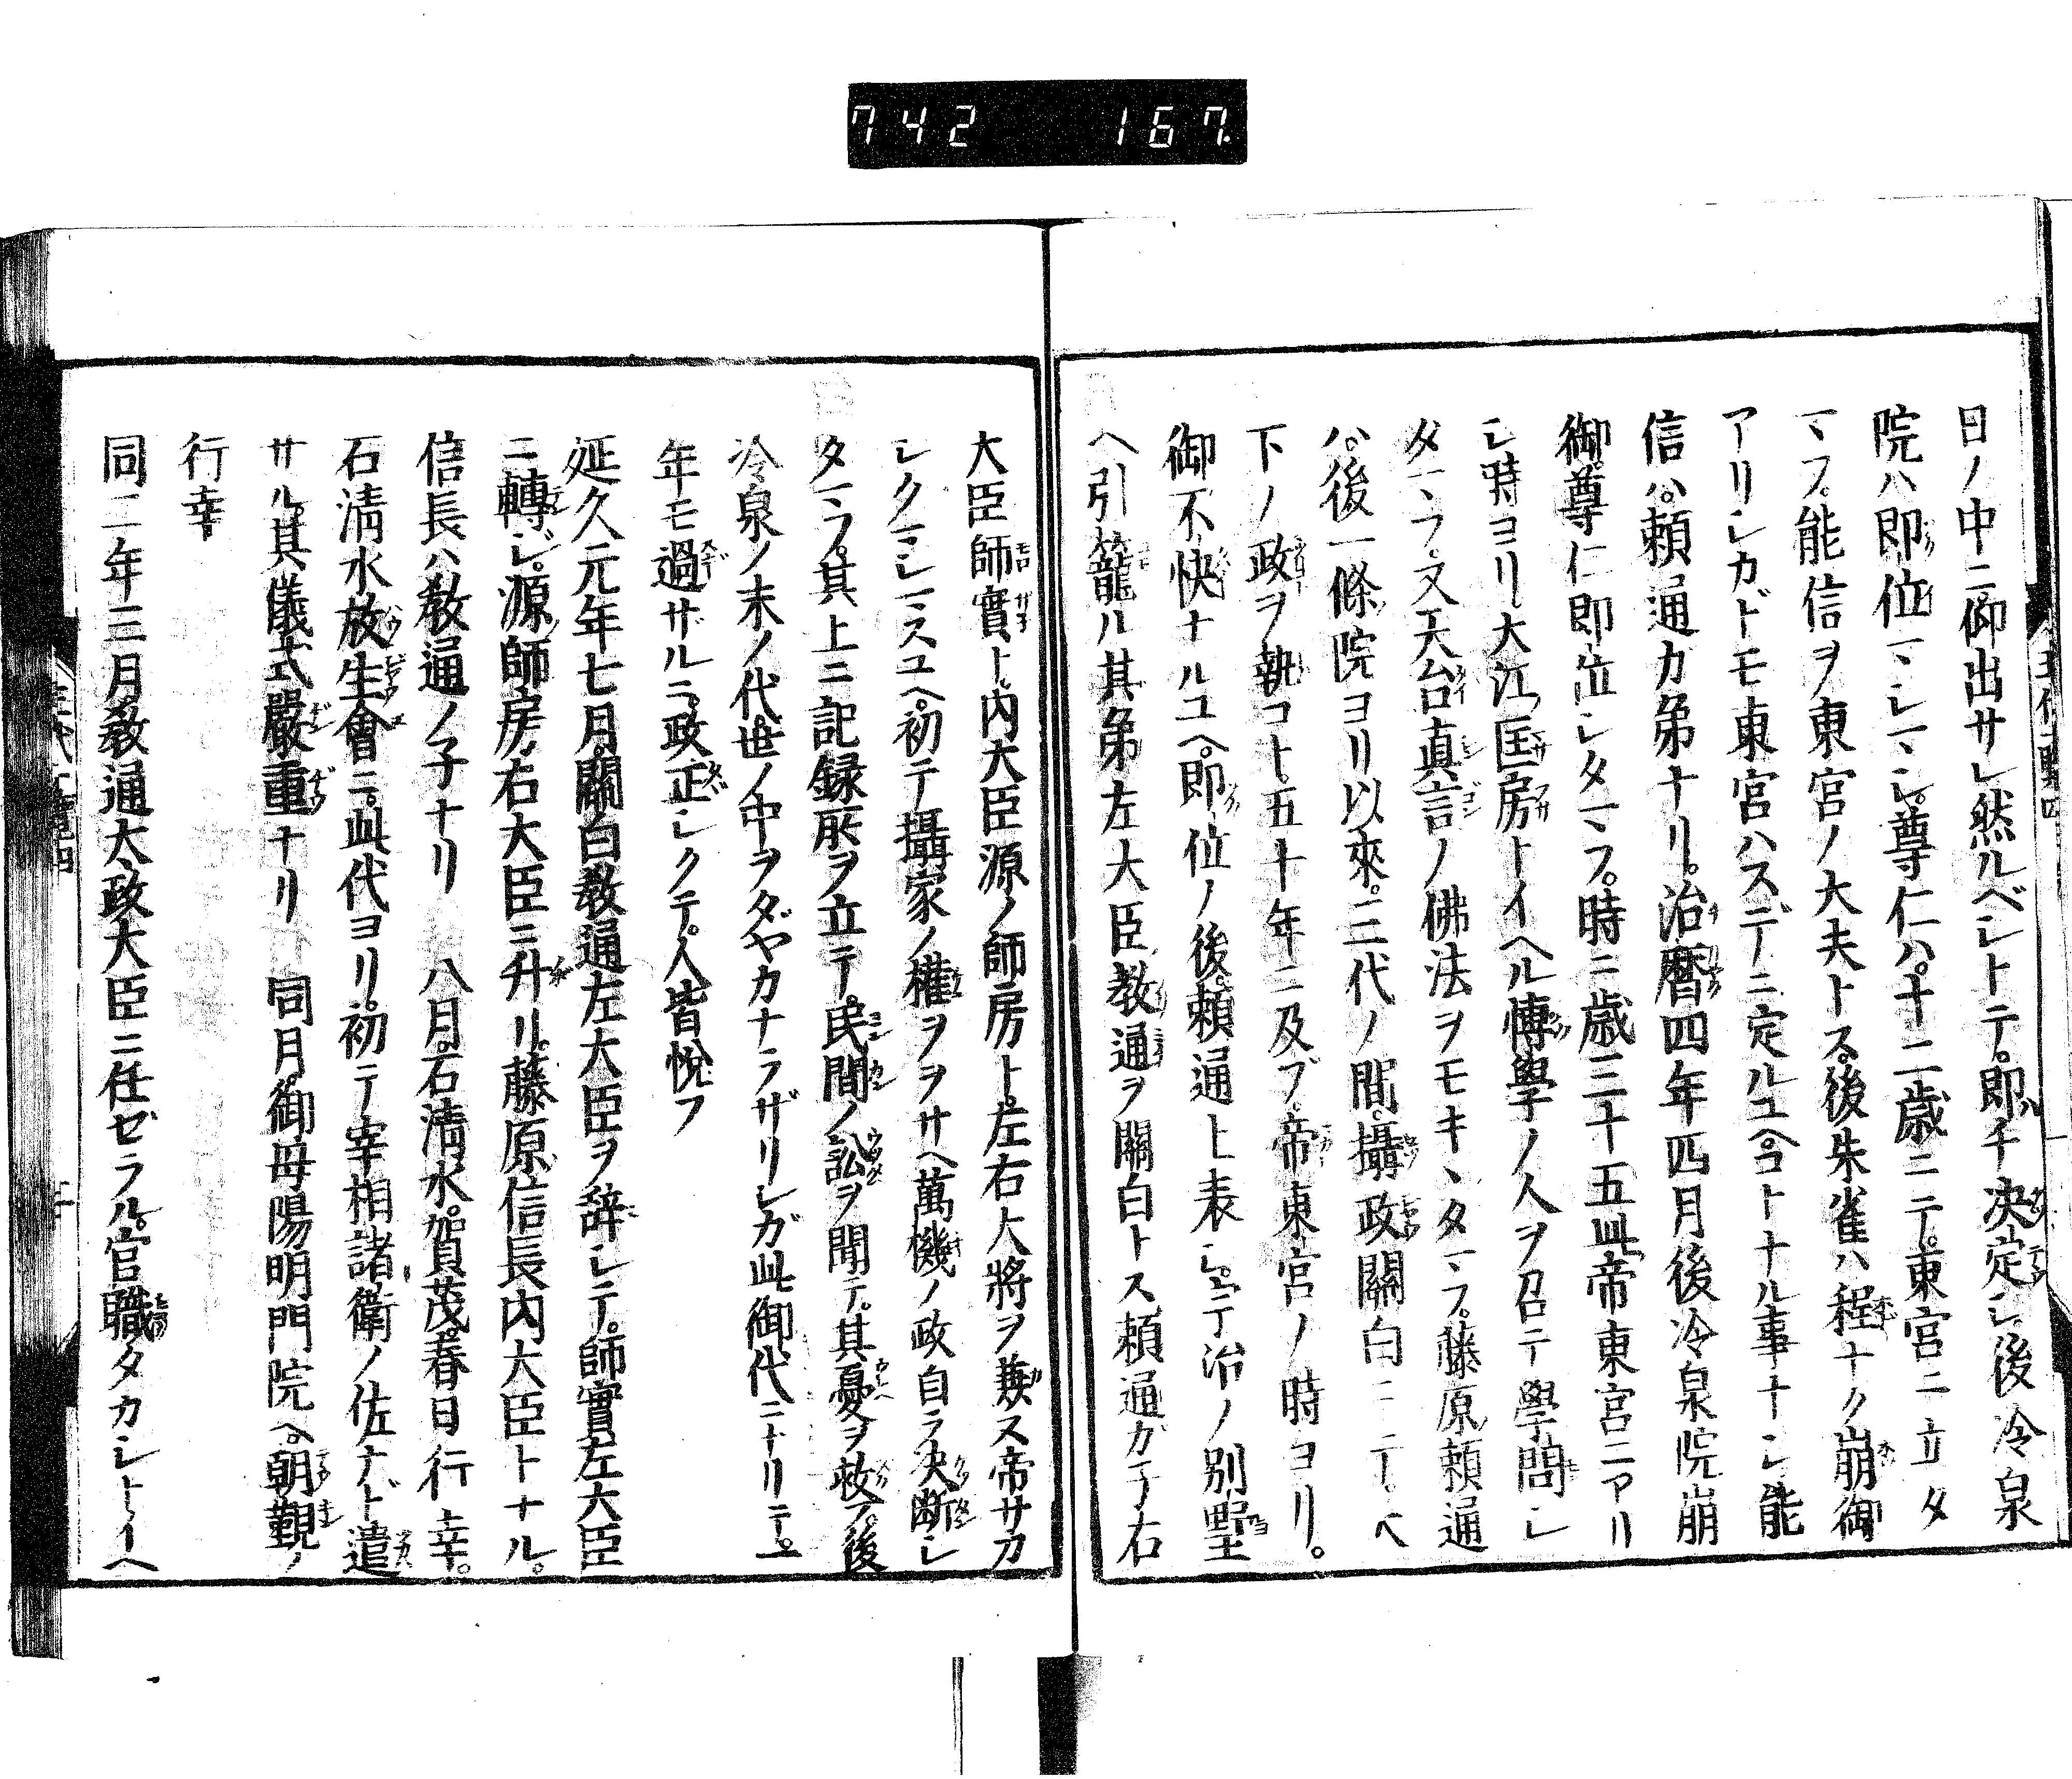 742 167
日ノ中ニ御出サレ然ルベシトテ。即チ決定シ。後冷泉
院ハ即位マシ〳〵。尊仁ハ。十二歳ニテ。東宮ニ立タ
マフ。能信ヲ東宮ノ大夫トス。後朱雀ハ程ナク崩御
アリシカドモ東宮ハスデニ定ルユヘ。コトナル事ナシ能
信ハ。頼通カ弟ナリ。治暦四年四月後冷泉院崩
御。尊仁即位シタマフ。時ニ歳三十五此帝東宮ニアリ
シ時ヨリ。大江匡房トイヘル博學ノ人ヲ召テ學問シ
タマフ。又天台真言ノ佛法ヲモキヽタマフ。藤原頼通
ハ。後一條院ヨリ以來。三代ノ間。攝政關白ニテ。天
下ノ政ヲ執コト。五十年ニ及ブ。帝東宮ノ時ヨリ。
御不快ナルユヘ。即位ノ後。頼通上表シ。宇治ノ別墅
ヘ引籠ル其弟左大臣教通ヲ關白トス頼通カ子右
大臣師實ト。内大臣源ノ師房ト。左右大將ヲ兼ス帝サカ
シクマシマスユヘ。初テ攝家ノ權ヲヲサヘ萬機ノ政自ラ決断シ
タマフ。其上ニ記録所ヲ立テ。民間ノ訟ヲ聞テ。其憂ヲ救フ。後
冷泉ノ末ノ代世ノ中ヲダヤカナラザリシガ此御代ニナリテ。一
年モ過サルニ。政正シクテ。人皆悅フ
延久元年七月。關白教通左大臣ヲ辞シテ。師實左大臣
ニ轉シ。源師房右大臣ニ升リ。藤原信長内大臣トナル。
信長ハ教通ノ子ナリ 八月。石清水。賀茂。春日行幸。
石清水放生會ニ。此代ヨリ。初テ宰相諸衛ノ佐ナド遣
サル。其儀式嚴重ナリ 同月。御母陽明門院ヘ。朝覲ノ
行幸
同二年三月。教通大政大臣ニ任ゼラル。官職タカシトイヘ